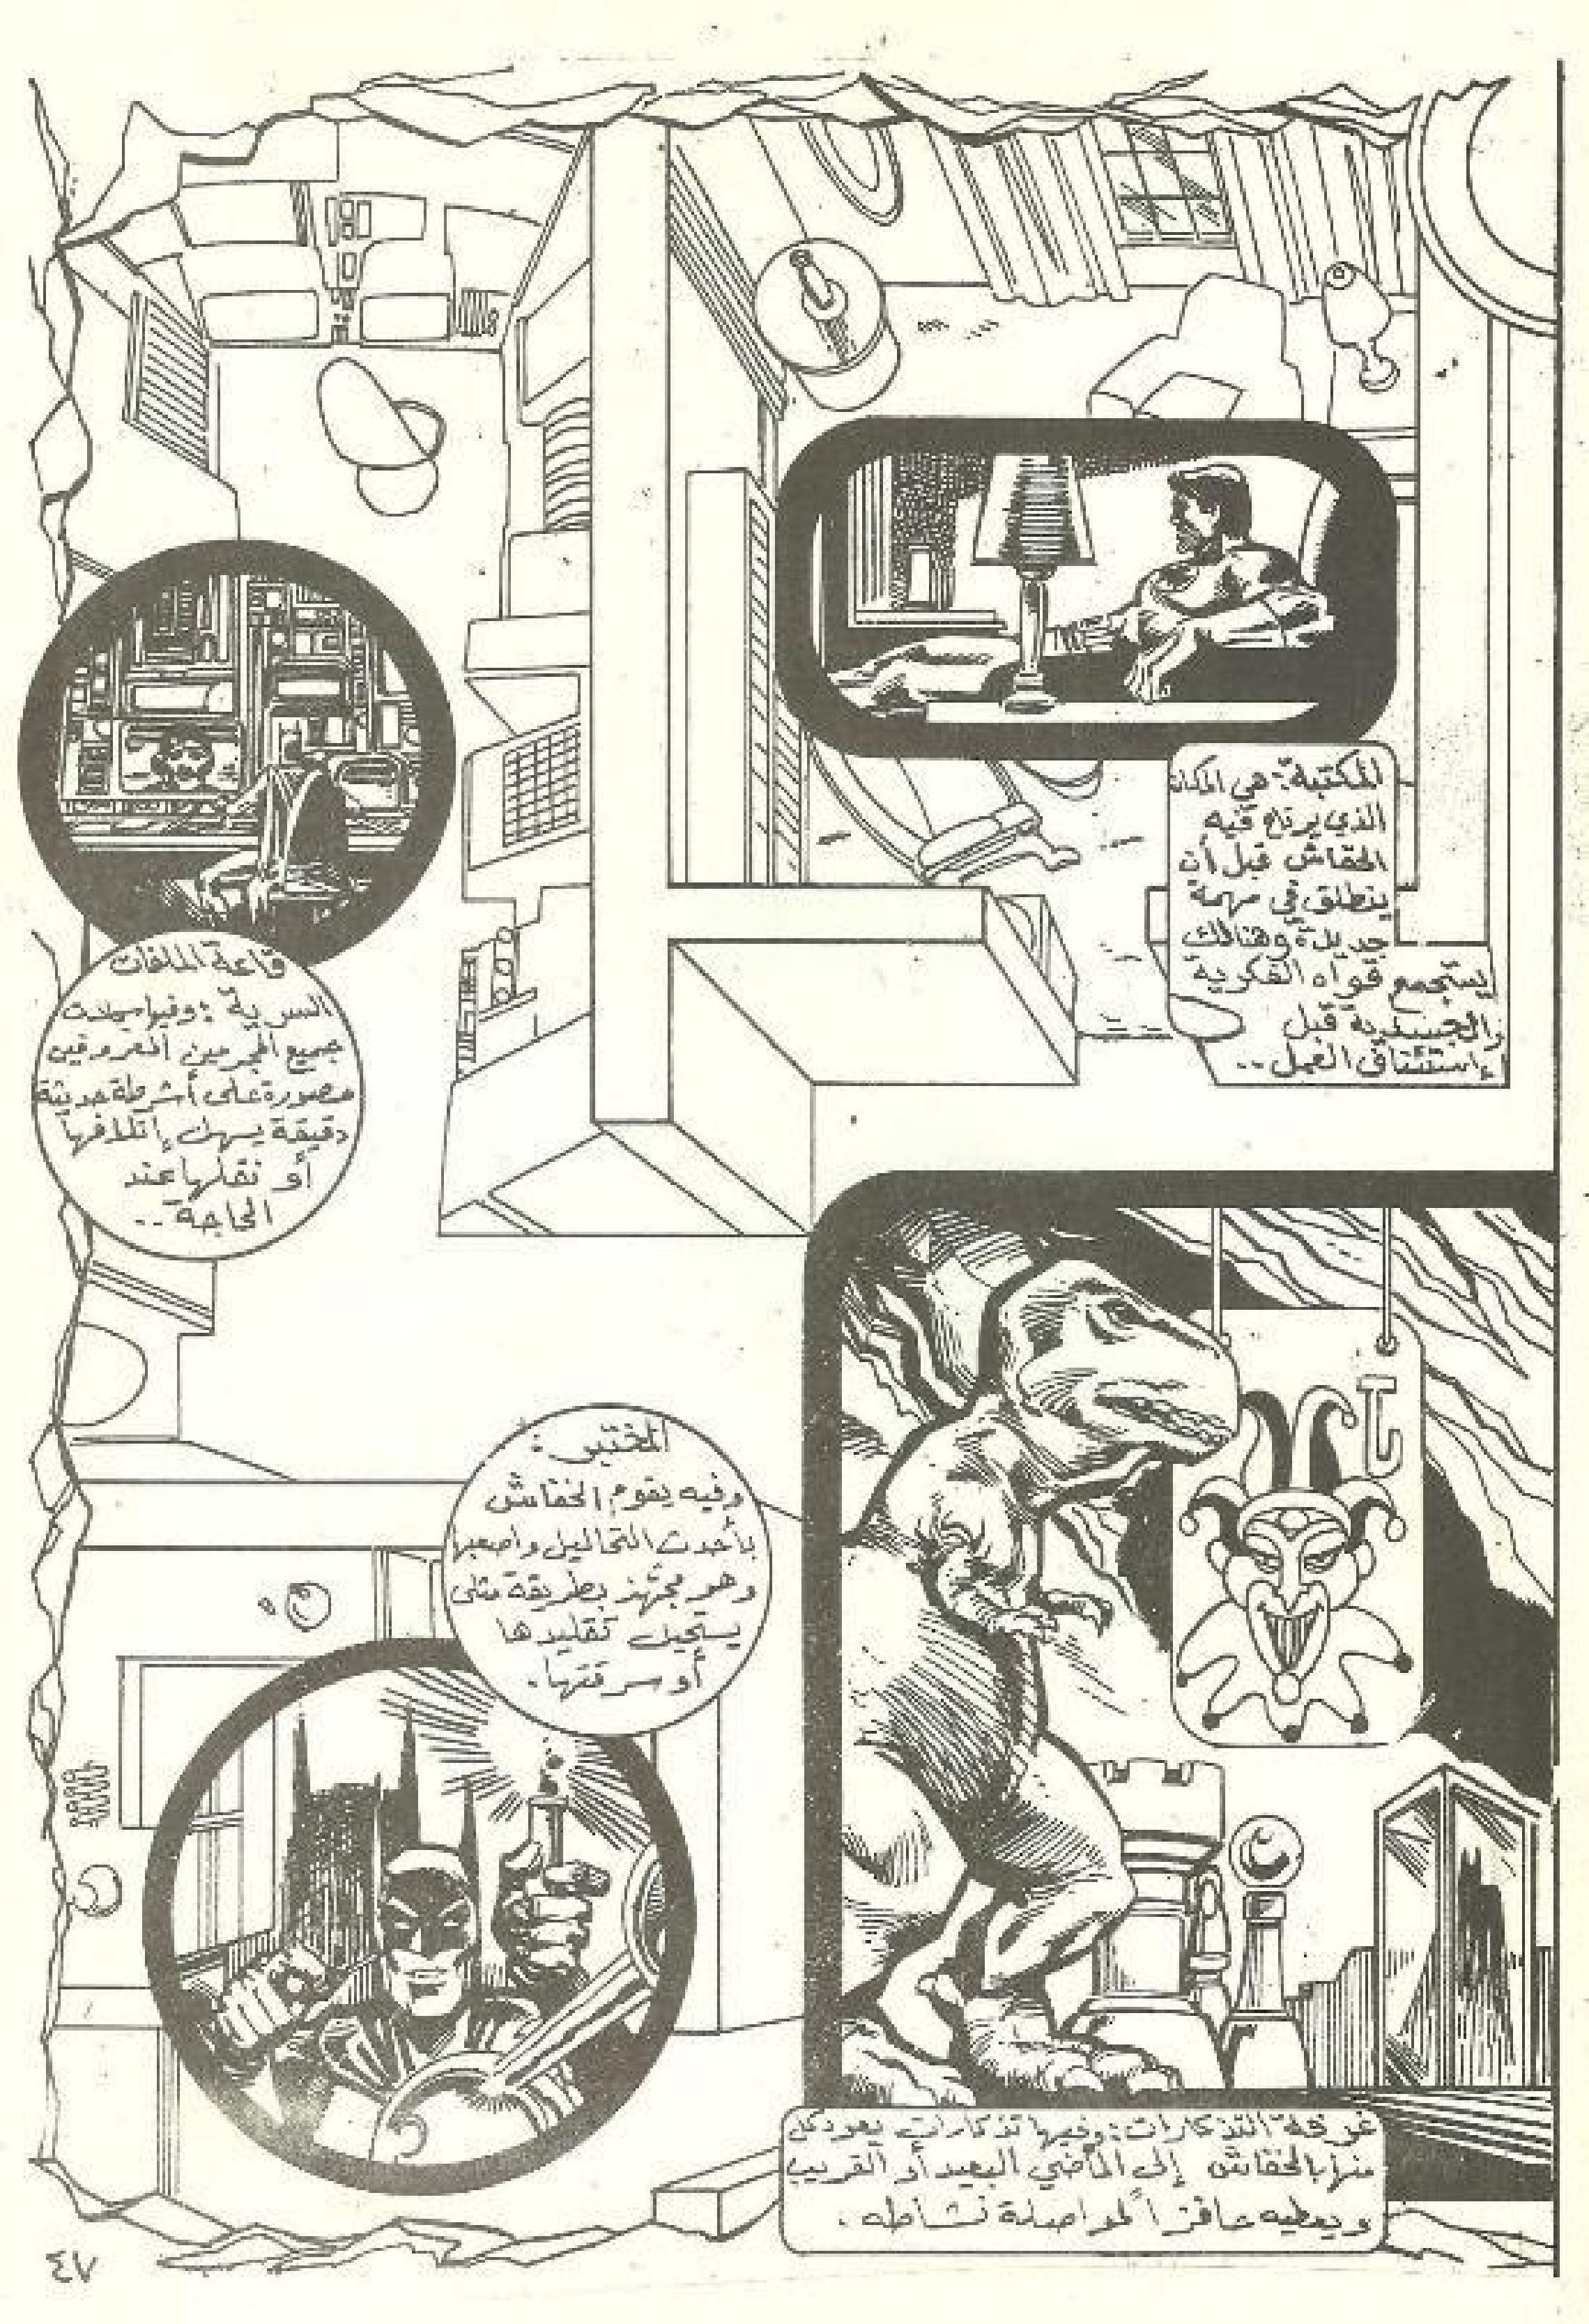 المكتبة: هي المكان
الذي يرتاح فيه
الخفاش قبل أن
ينطلق في مهمة
جديدة وهنالك
يستجمع قواه الفكرية
والجسدية قبل
إستئناف العمل..
قاعة الملفات
السرية: وفيها سجلات
جميع المجرمين المعروفين
مصورة على أشرطة حديثة
دقيقة يسهل إتلافها
أو نقلها عند
الحاجة..
المختبر:
وفيه يقوم الخفاش
بأحدث التحاليل وأصعبها
وهو مجهز بطريقة مثلى
يستحيل تقليدها
أو سرقتها.
J
غرفة التذكارات: وفيها تذكارات يعود كل
منها بالخفاش إلى الماضي البعيد أو القريب
ويعطيه حافزاً لمواصلة نشاطه.
٤٧